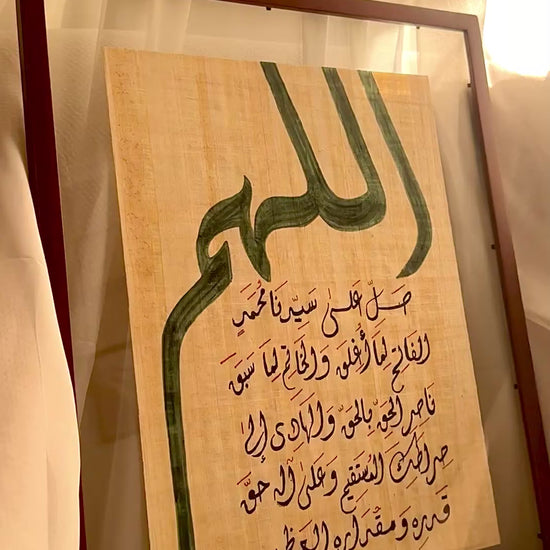 اللهم
صَلِّ عَلىٰ سَيِّدِنَا مُحَمَّدٍ
الفَاتِحِ لِمَا أُغْلِقَ وَالخَاتِمِ لِمَا سَبَقَ
نَاصِرِ الحَقِّ بِالحَقِّ وَالهَادِي إِلىٰ
صِرَاطِكَ المُسْتَقِيمِ وَعَلىٰ آلِهِ حَقَّ
قَدْرِهِ وَمِقْدَارِهِ